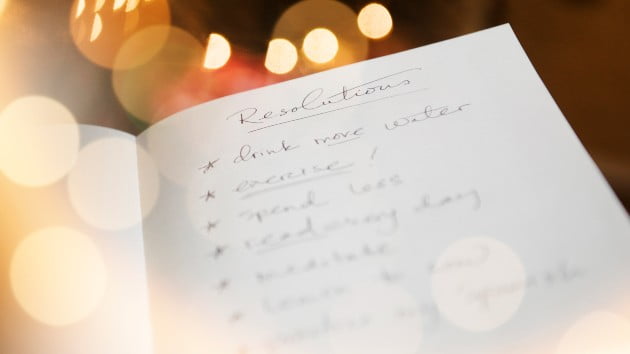 Resolutions
* drink more water
* exercise!
* spend less
* read every day
* meditate
* learn to